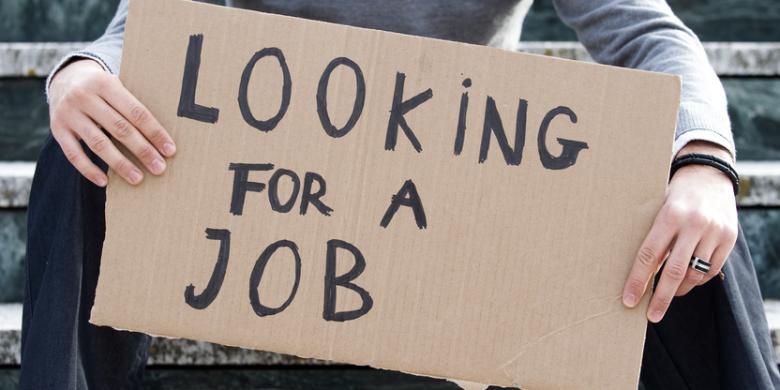 LOOKiNG
FOR A
JOB